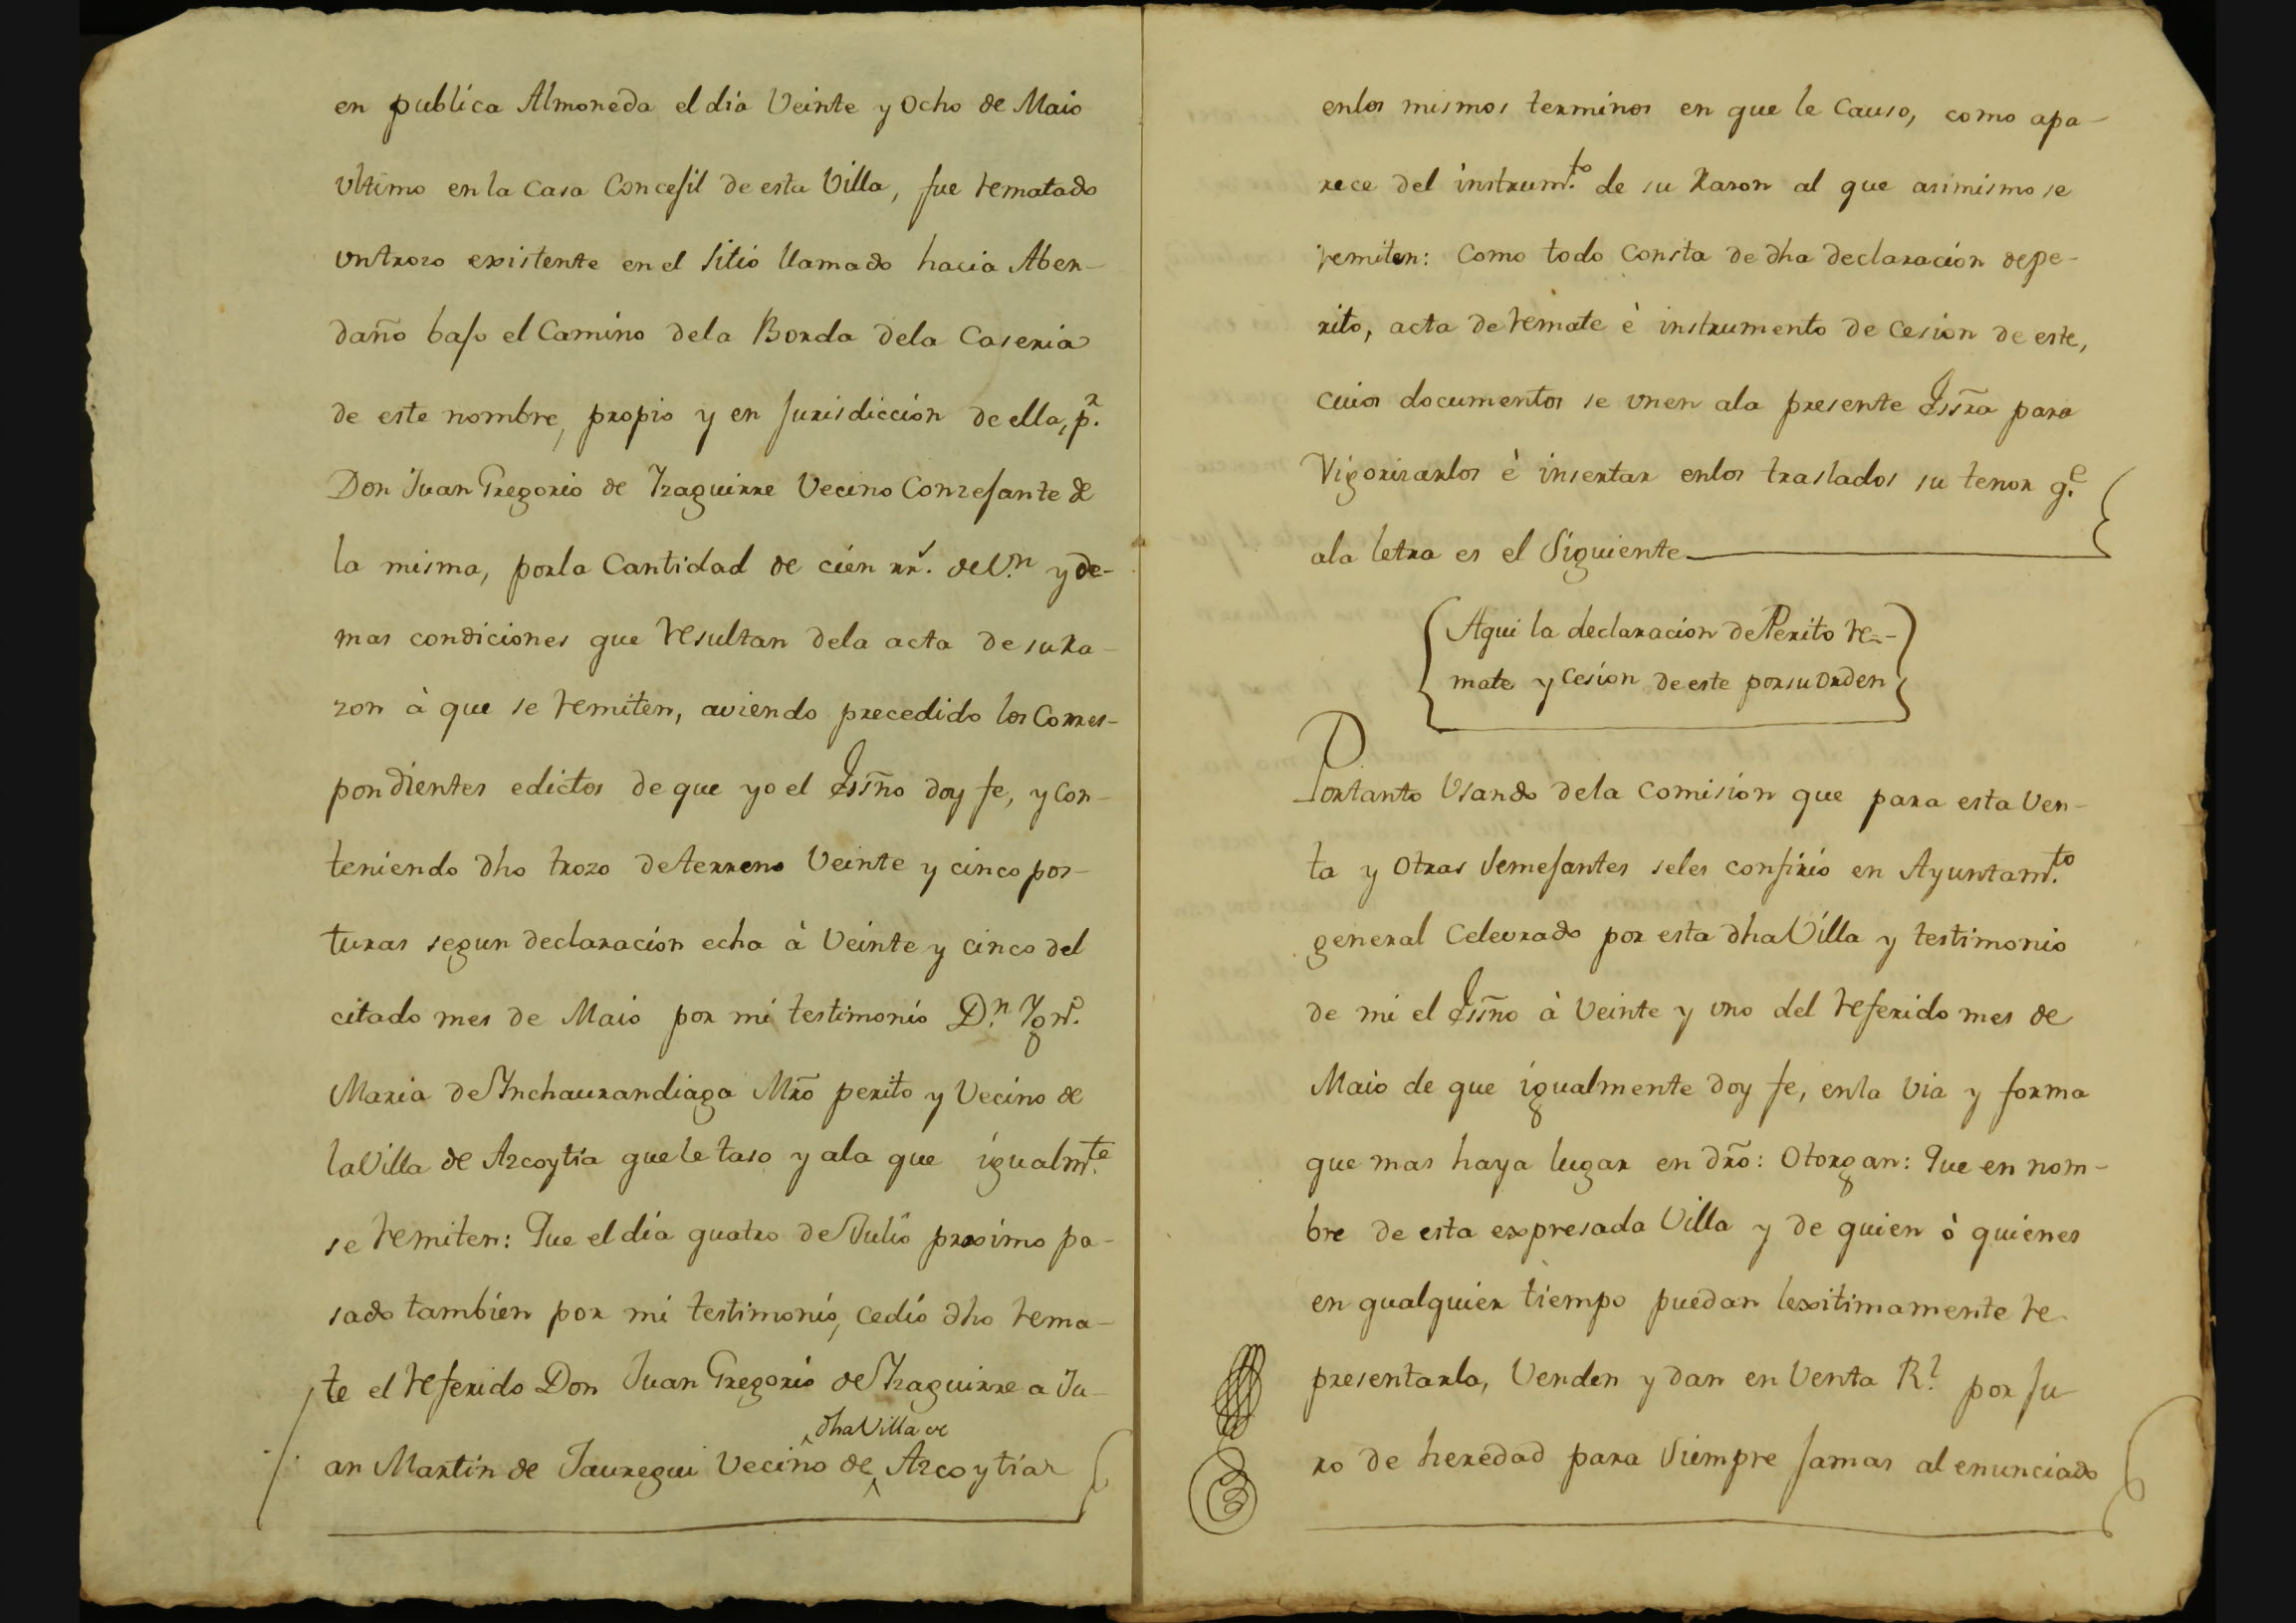 en publica Almoneda el dia Veinte y Ocho de Maio
vltimo en la Casa Concejil de esta Villa, fue rematado
vn trozo existente en el sitio llamado hacia Aben-
daño bajo el Camino dela Borda dela Caseria
de este nombre, propio y en Jurisdicción de ella, p.r
Don Juan Gregorio de Yzaguirre Vecino Conzejante de
la misma, por la Cantidad de cien rr.s de V.n y de-
mas condiciones que resultan dela acta de su ra-
zon à que se remiten, aviendo precedido los Corres-
pondientes edictos de que yo el Essño doy fe, y con-
teniendo dho trozo de terreno Veinte y cinco pos-
turas segun declaración echa à Veinte y cinco del
citado mes de Maio por mi testimonio D.n Ygn.o
Maria de Ynchaurandiaga Mrõ perito y Vecino de
la Villa de Azcoytia que le taso y ala que igualm.te
se remiten: Que el dia quatro de Julio proximo pa-
sado tambien por mi testimonio, cedió dho rema-
te el referido Don Juan Gregorio de Yzaguirre a Ju-
dha Villa de
an Martin de Jauregui Vecino de Azcoytia
enlos mismos terminos en que le Causo, como apa-
rece del instrum.to de su Razon al que asimismo se
remiten: Como todo Consta de dha declaración de pe-
rito, acta de remate è instrumento de Cesion de este,
cuios documentos se vnen ala presente Essra para
Vigorizarlos è insertar enlos traslados su tenor q.e
ala letra es el Siguiente
Aqui la declaracion de Perito re-
mate y Cesion de este por su Orden
Portanto Vsando dela Comision que para esta Ven-
ta y Otras Semejantes seles confirió en Ayuntam.to
general Celevrado por esta dha Villa y testimonio
de mi el Essño à Veinte y vno del referido mes de
Maio de que igualmente doy fe, enla via y forma
que mas haya lugar en drõ: Otorgan: Que en nom-
bre de esta expresada Villa y de quien ò quienes
en qualquier tiempo puedan lexitimamente re
presentarla, Venden y dan en Venta R.l por Ju-
ro de heredad para Siempre Jamas al enunciado